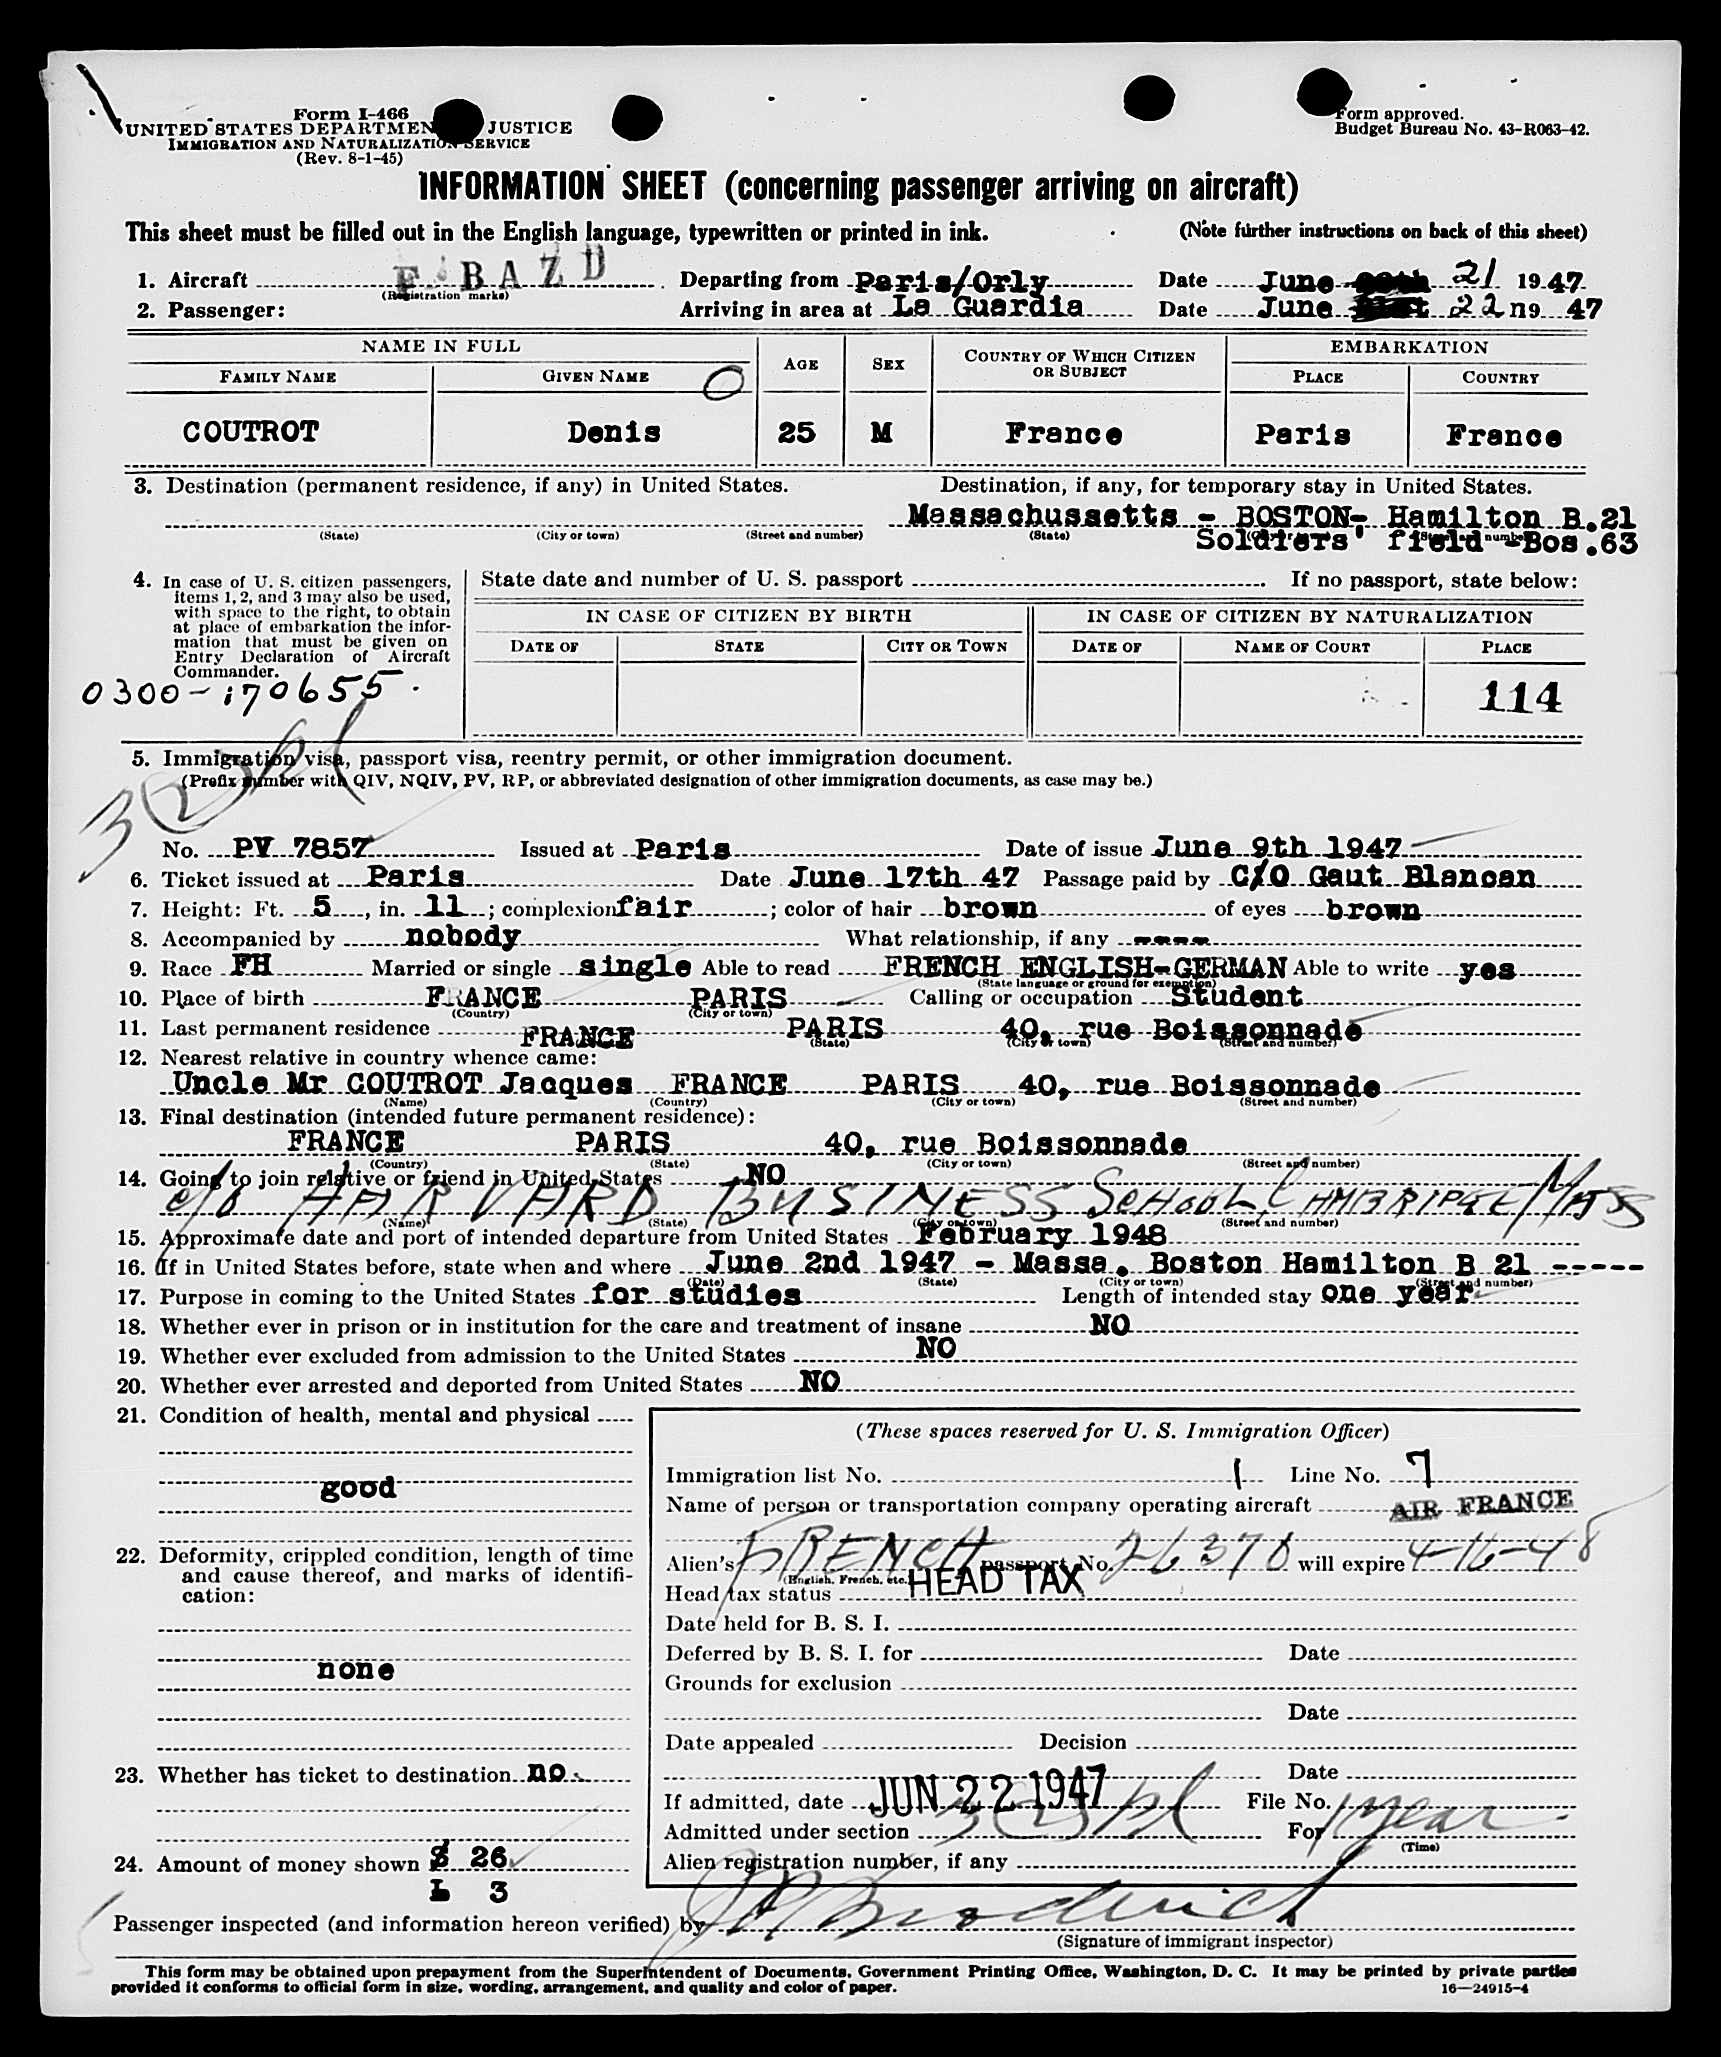 Form I-466
UNITED STATES DEPARTMENT JUSTICE
IMMIGRATION AND NATURALIZATION SERVICE
(Rev. 8-1-45)
Form approved.
Budget Bureau No. 43-R063-42.
INFORMATION SHEET (concerning passenger arriving on aircraft)
This sheet must be filled out in the English language, typewritten or printed in ink. (Note further instructions on back of this sheet)
1. Aircraft F BAZD Departing from Paris/Orly Date June 21 1947
(Registration marks)
2. Passenger: Arriving in area at La Guardia Date June 22 19 47
NAME IN FULL AGE SEX COUNTRY OF WHICH CITIZEN OR SUBJECT EMBARKATION
FAMILY NAME GIVEN NAME PLACE COUNTRY
COUTROT Denis 25 M France Paris France
3. Destination (permanent residence, if any) in United States. Destination, if any, for temporary stay in United States.
Massachussetts - BOSTON- Hamilton B.21
(State) (City or town) (Street and number) (State)
Soldiers' field -Bos.63
4. In case of U. S. citizen passengers, items 1, 2, and 3 may also be used, with space to the right, to obtain at place of embarkation the information that must be given on Entry Declaration of Aircraft Commander.
State date and number of U. S. passport . If no passport, state below:
IN CASE OF CITIZEN BY BIRTH IN CASE OF CITIZEN BY NATURALIZATION
DATE OF STATE CITY OR TOWN DATE OF NAME OF COURT PLACE
0300-170655. 114
5. Immigration visa, passport visa, reentry permit, or other immigration document.
(Prefix number with QIV, NQIV, PV, RP, or abbreviated designation of other immigration documents, as case may be.)
No. PV 7857 Issued at Paris Date of issue June 9th 1947
6. Ticket issued at Paris Date June 17th 47 Passage paid by C/O Gaut Blancan
7. Height: Ft. 5, in. 11; complexion fair; color of hair brown of eyes brown
8. Accompanied by nobody What relationship, if any ----
9. Race FH Married or single single Able to read FRENCH ENGLISH-GERMAN Able to write yes
(State language or ground for exemption)
10. Place of birth FRANCE PARIS Calling or occupation Student
(Country) (City or town)
11. Last permanent residence FRANCE PARIS 40, rue Boissonnade
(State) (City or town) (Street and number)
12. Nearest relative in country whence came:
Uncle Mr COUTROT Jacques FRANCE PARIS 40, rue Boissonnade
(Name) (Country) (City or town) (Street and number)
13. Final destination (intended future permanent residence):
FRANCE PARIS 40, rue Boissonnade
(Country) (State) (City or town) (Street and number)
14. Going to join relative or friend in United States NO
c/o HARVARD BUSINESS SCHOOL CAMBRIDGE MASS
(Name) (State) (City or town) (Street and number)
15. Approximate date and port of intended departure from United States February 1948
16. If in United States before, state when and where June 2nd 1947 - Massa. Boston Hamilton B 21 -----
(Date) (State) (City or town) (Street and number)
17. Purpose in coming to the United States for studies Length of intended stay one year
18. Whether ever in prison or in institution for the care and treatment of insane NO
19. Whether ever excluded from admission to the United States NO
20. Whether ever arrested and deported from United States NO
21. Condition of health, mental and physical
good
22. Deformity, crippled condition, length of time and cause thereof, and marks of identification:
none
23. Whether has ticket to destination no.
24. Amount of money shown $ 26
L 3
(These spaces reserved for U. S. Immigration Officer)
Immigration list No. 1 Line No. 7
Name of person or transportation company operating aircraft AIR FRANCE
Alien's FRENCH passport No. 26370 will expire 4-16-48
(English, French, etc.)
Head tax status HEAD TAX
Date held for B. S. I.
Deferred by B. S. I. for Date
Grounds for exclusion
Date
Date appealed Decision
Date
If admitted, date JUN 22 1947 File No.
Admitted under section 3(2) For 1 year
(Time)
Alien registration number, if any
Passenger inspected (and information hereon verified) by
(Signature of immigrant inspector)
This form may be obtained upon prepayment from the Superintendent of Documents, Government Printing Office, Washington, D. C. It may be printed by private parties
provided it conforms to official form in size, wording, arrangement, and quality and color of paper. 16—24915-4